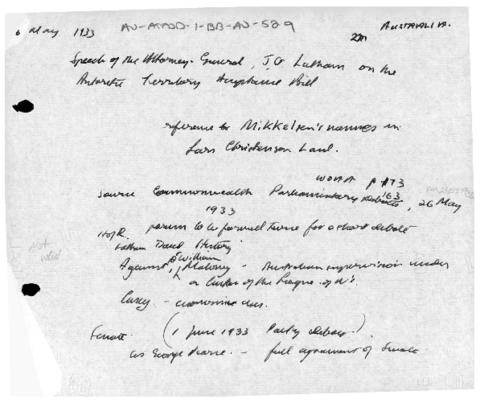 6 May 1933 AU-ATADD-1-BB-AU-589 AUSTRALIA.
Speech of the Attorney-General, J.G Latham on the
Antarctic Territory Acceptance Bill
reference to Mikkelsen's names in
Lars Christensen Land.
p 173
Source Commonwealth Parliamentary Debates, 26 May
1933
HofR. to be formal turn for a short debate
Latham
Against William Maloney - Australian supervision under
of the League of N's.
Casey -
Senate (1 June 1933 debate)
George Pearce. - full agreement of Senate